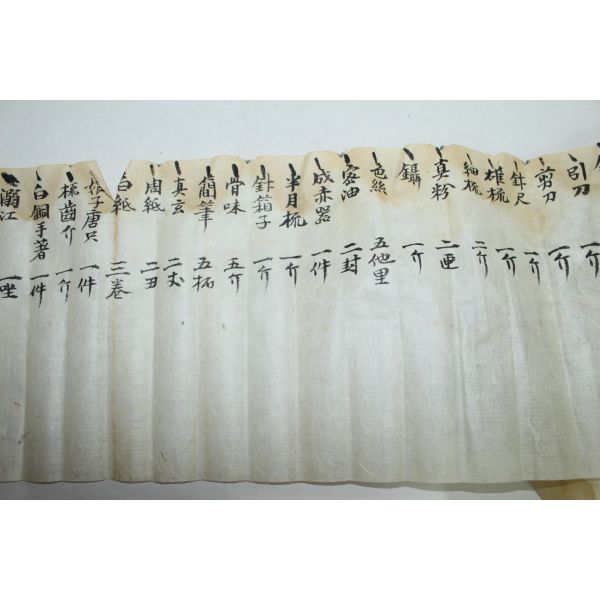 引刀 一介
剪刀 一介
針尺 一介
椎梳 一介
細梳 二介
真粉 二匣
鑷 一介
色絲 五他里
蜜油 二封
成赤器 一件
半月梳 一介
針箱子 一介
骨味 五介
簡筆 五柄
真玄 二丈
周紙 二丑
白紙 三卷
娘子唐只 一件
梳齒介 一介
白銅手著 一件
溺江 一坐